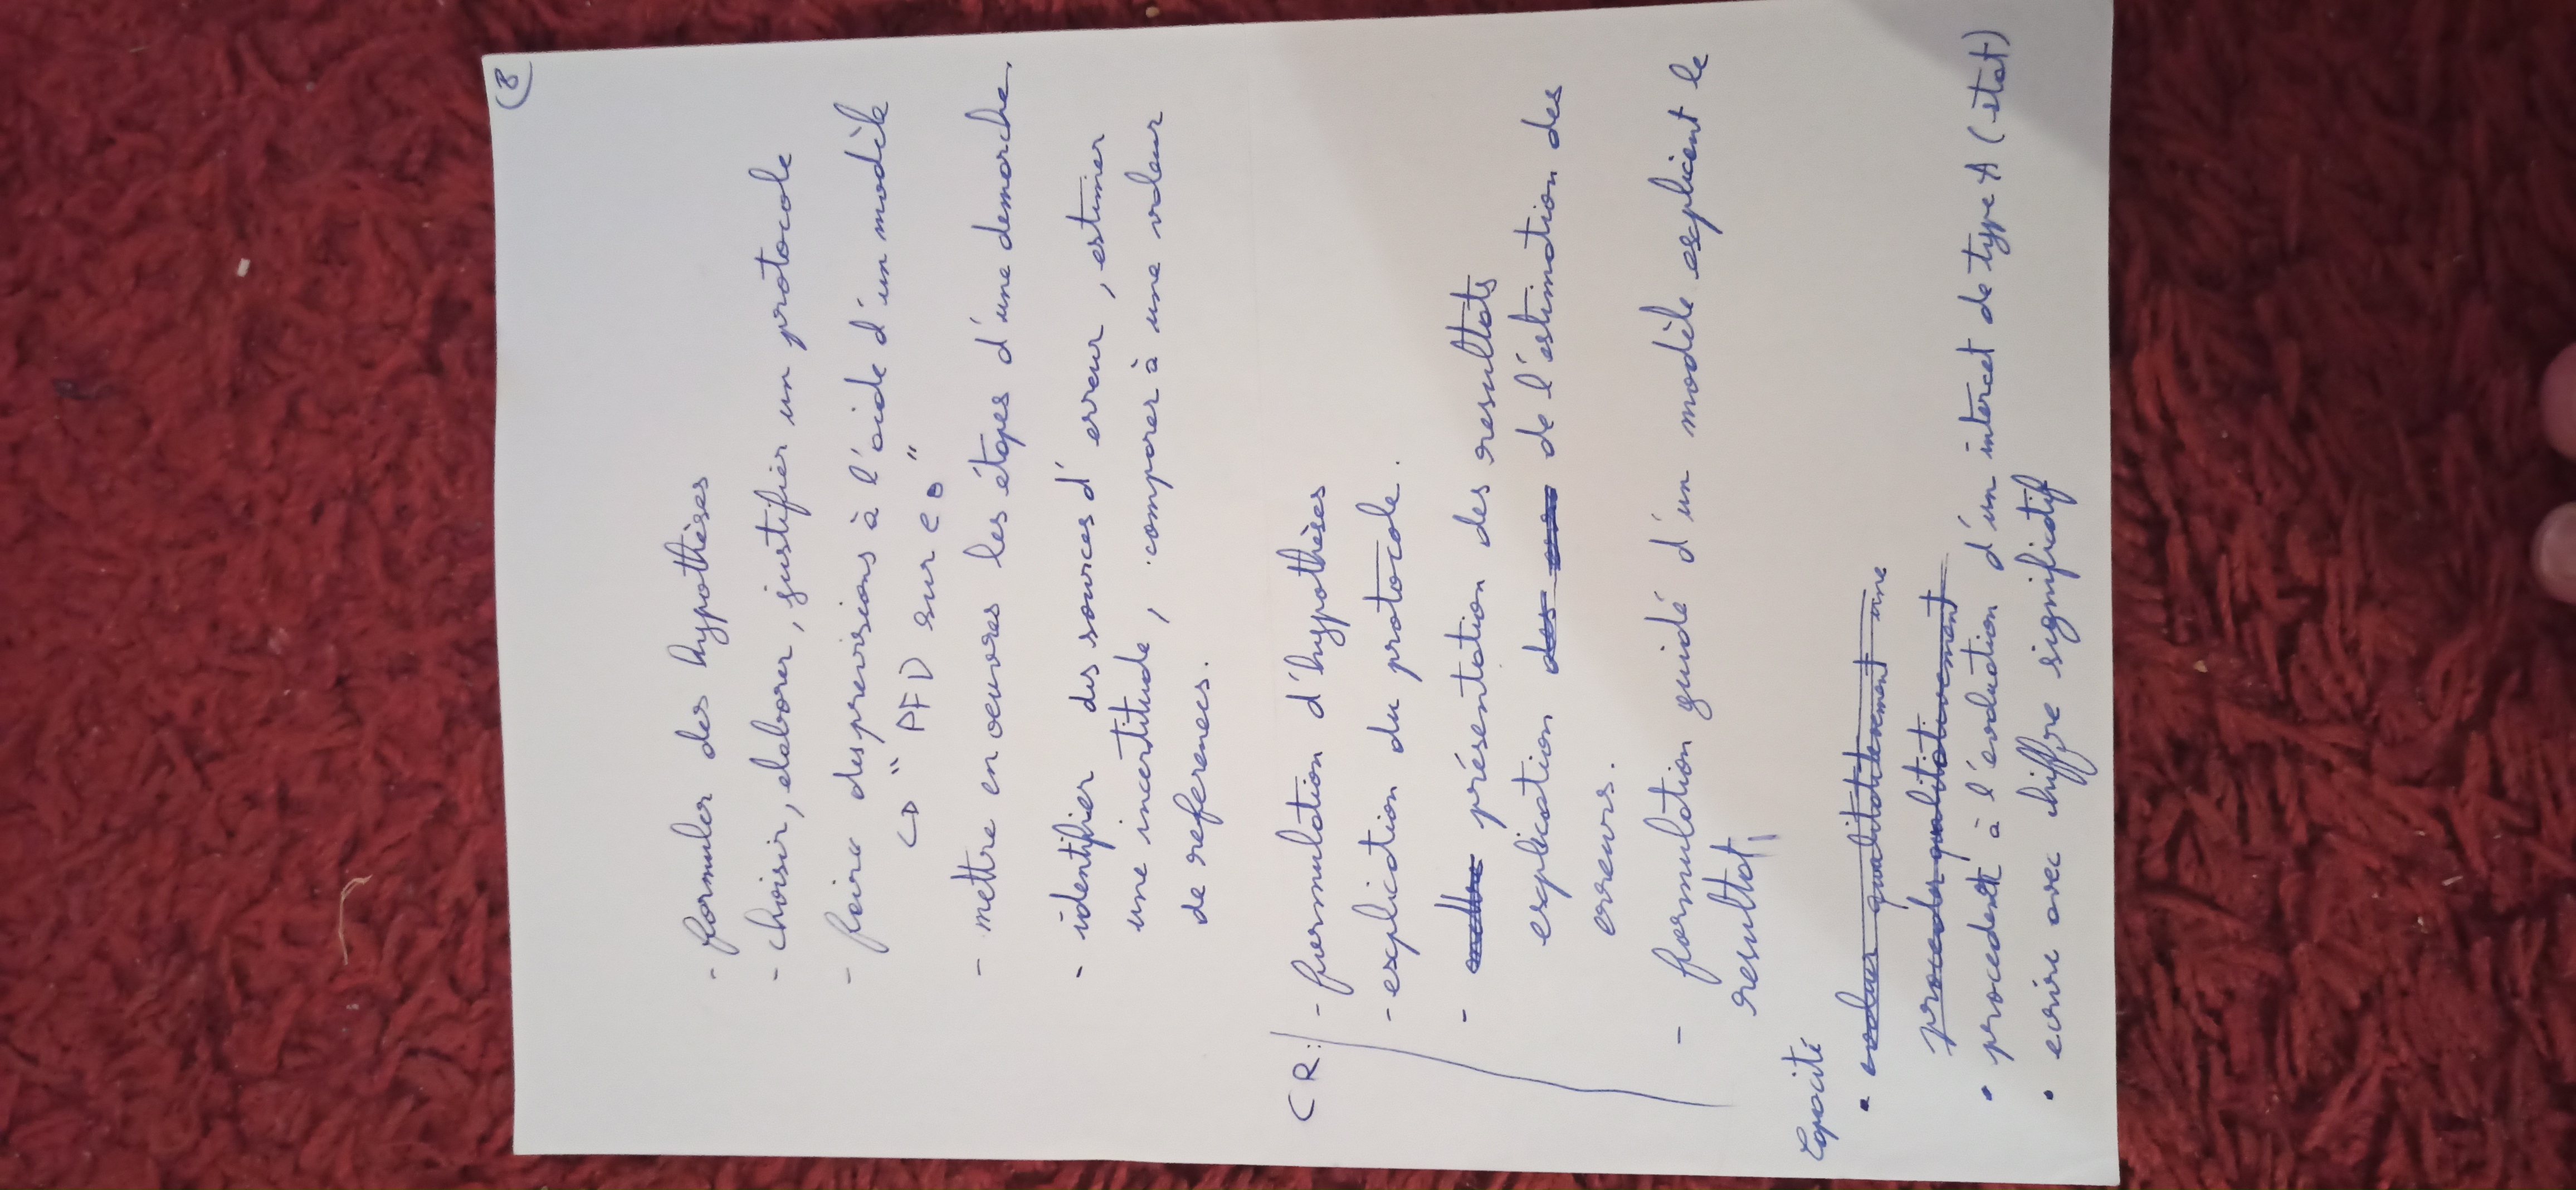 8
- formuler des hypothèses
- choisir, elaborer, justifier un protocole
- faire des previsions à l'aide d'un modèle
↳ "PFD sur e o"
- mettre en oeuvres les étapes d'une demarche.
- identifier des sources d'erreur, estimer
une incertitude, comparer à une valeur
de references.
CR: - formulation d'hypothèses
- explication du protocole.
- mettre présentation des resultats
explication des de l'estimation des
erreurs.
- formulation guidé d'un modèle explicant le
resultat,
Capacité
• evaluer qualitativement une
proceder qualitativement
• procedent à l'evaluation d'un intercet de type A (stat)
• ecrire avec chiffre significatif